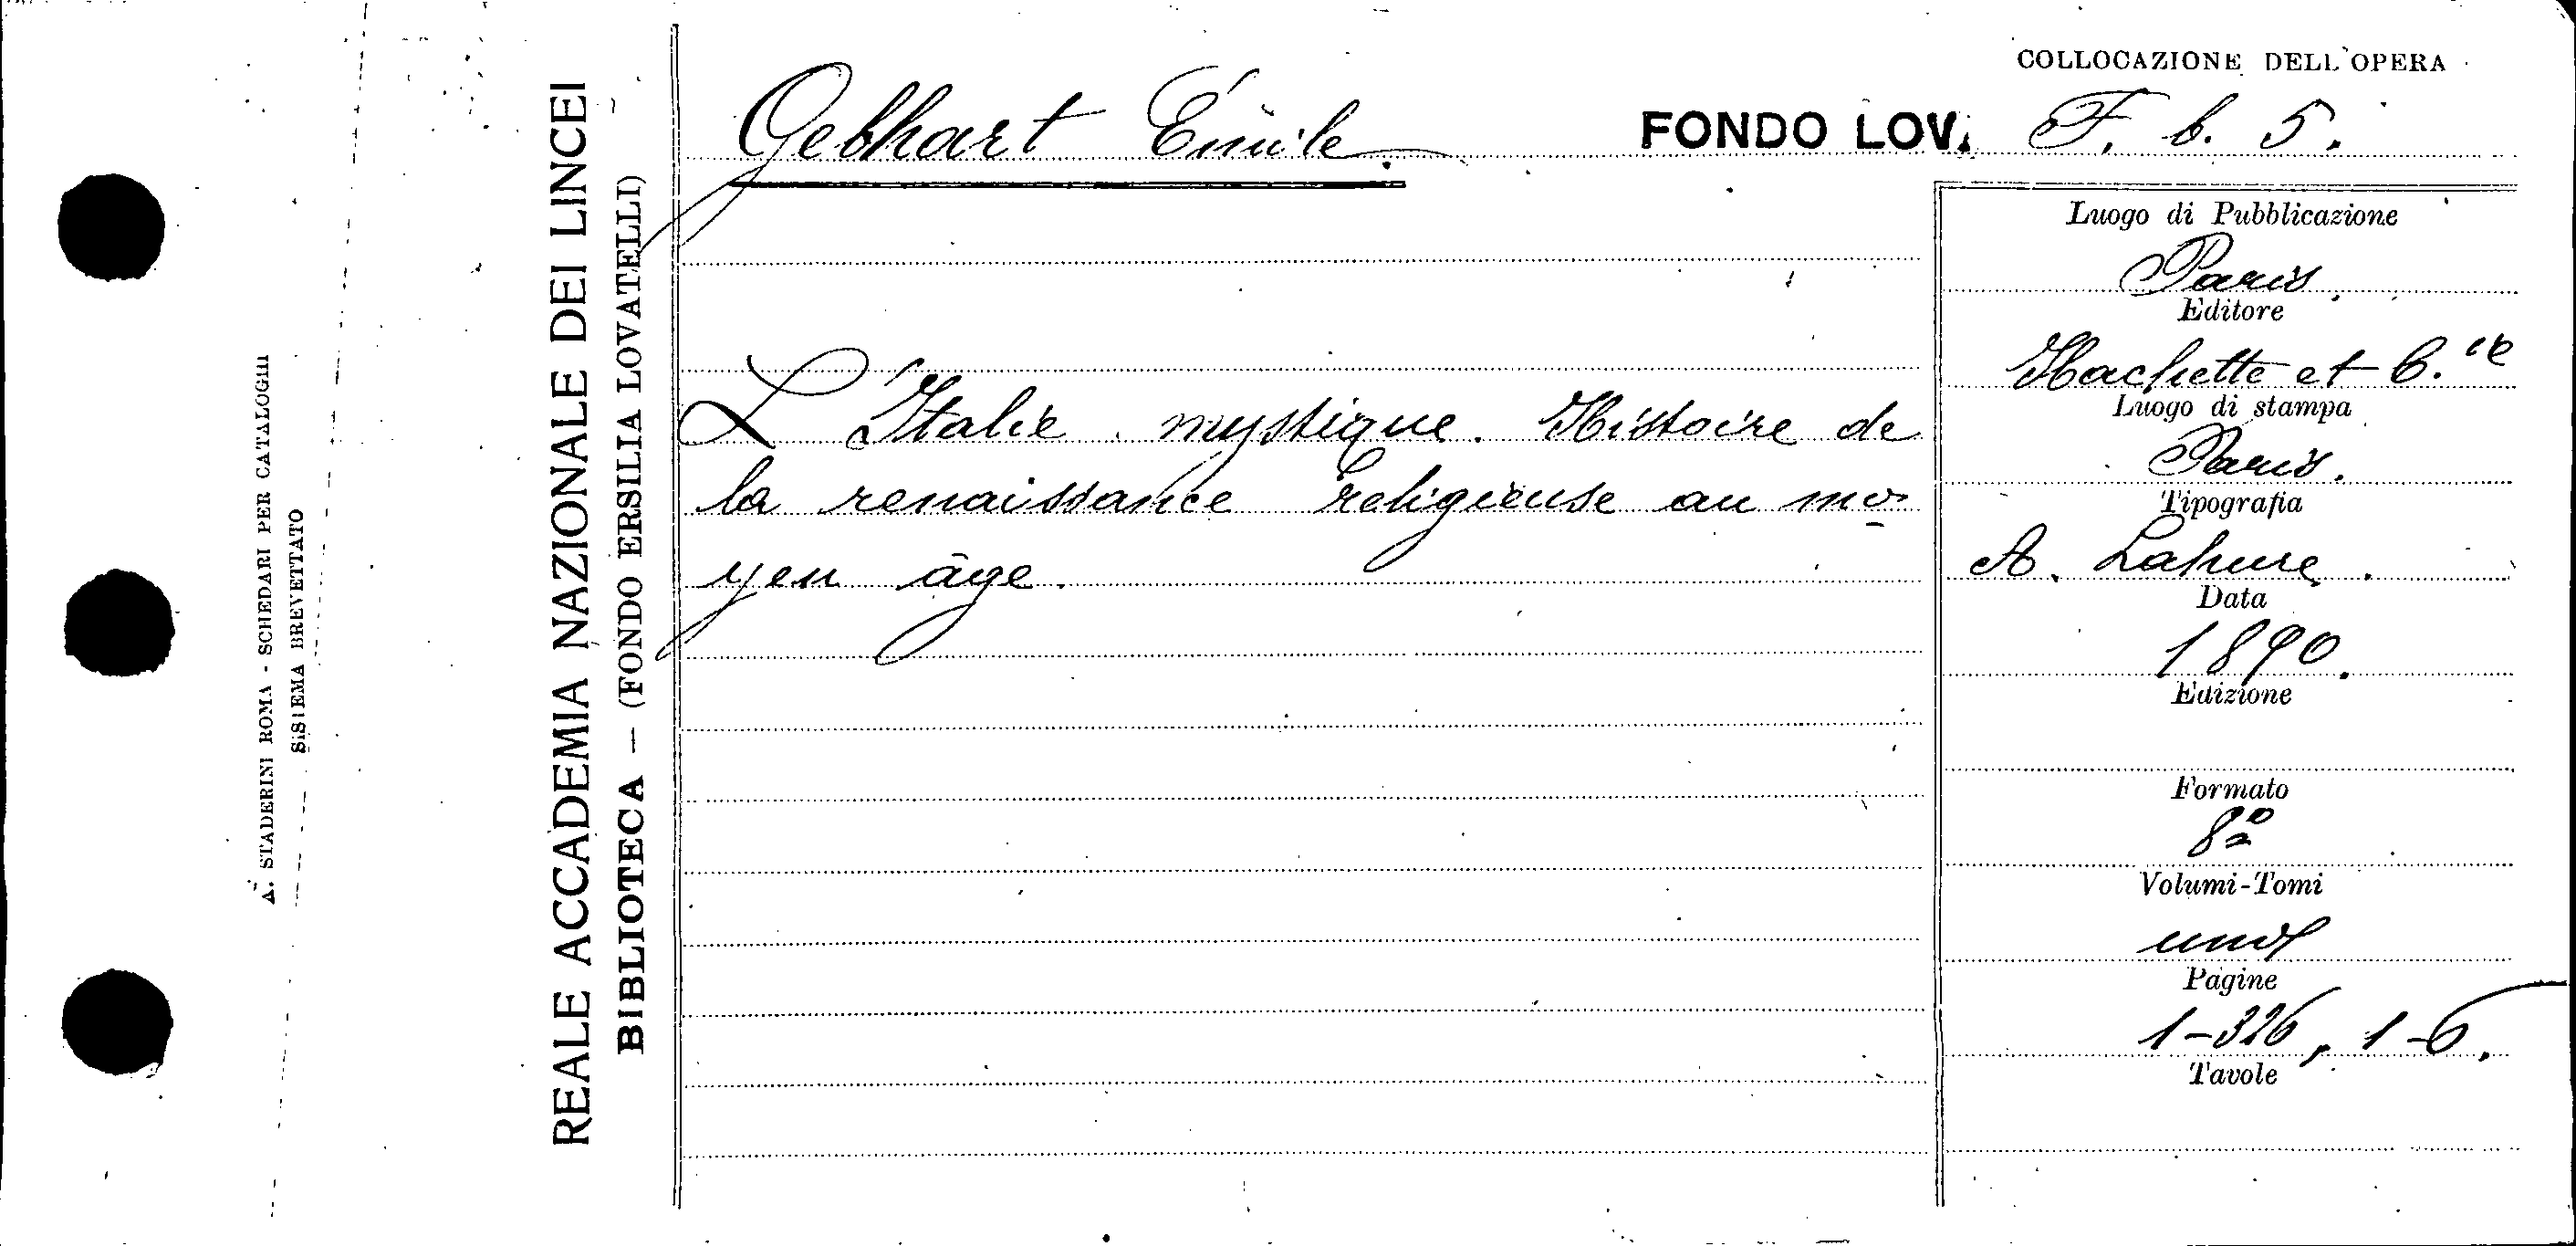 A. STADERINI ROMA - SCHEDARI PER CATALOGHI
SISTEMA BREVETTATO
REALE ACCADEMIA NAZIONALE DEI LINCEI
BIBLIOTECA — (FONDO ERSILIA LOVATELLI)
Gebhart Émile.
COLLOCAZIONE DELL'OPERA
FONDO LOV. F. b. 5.
L'Italie mystique. Histoire de
la renaissance religieuse au mo-
yen âge.
Luogo di Pubblicazione
Paris.
Editore
Hachette et C.ie
Luogo di stampa
Paris.
Tipografia
A. Lahure.
Data
1890.
Edizione
Formato
8º
Volumi-Tomi
uno
Pagine
1-326, 1-6.
Tavole